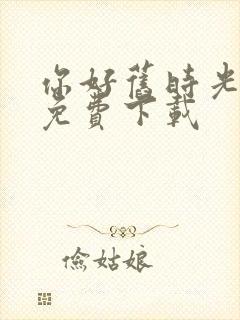 你好舊時光
免費下載
儉姑娘